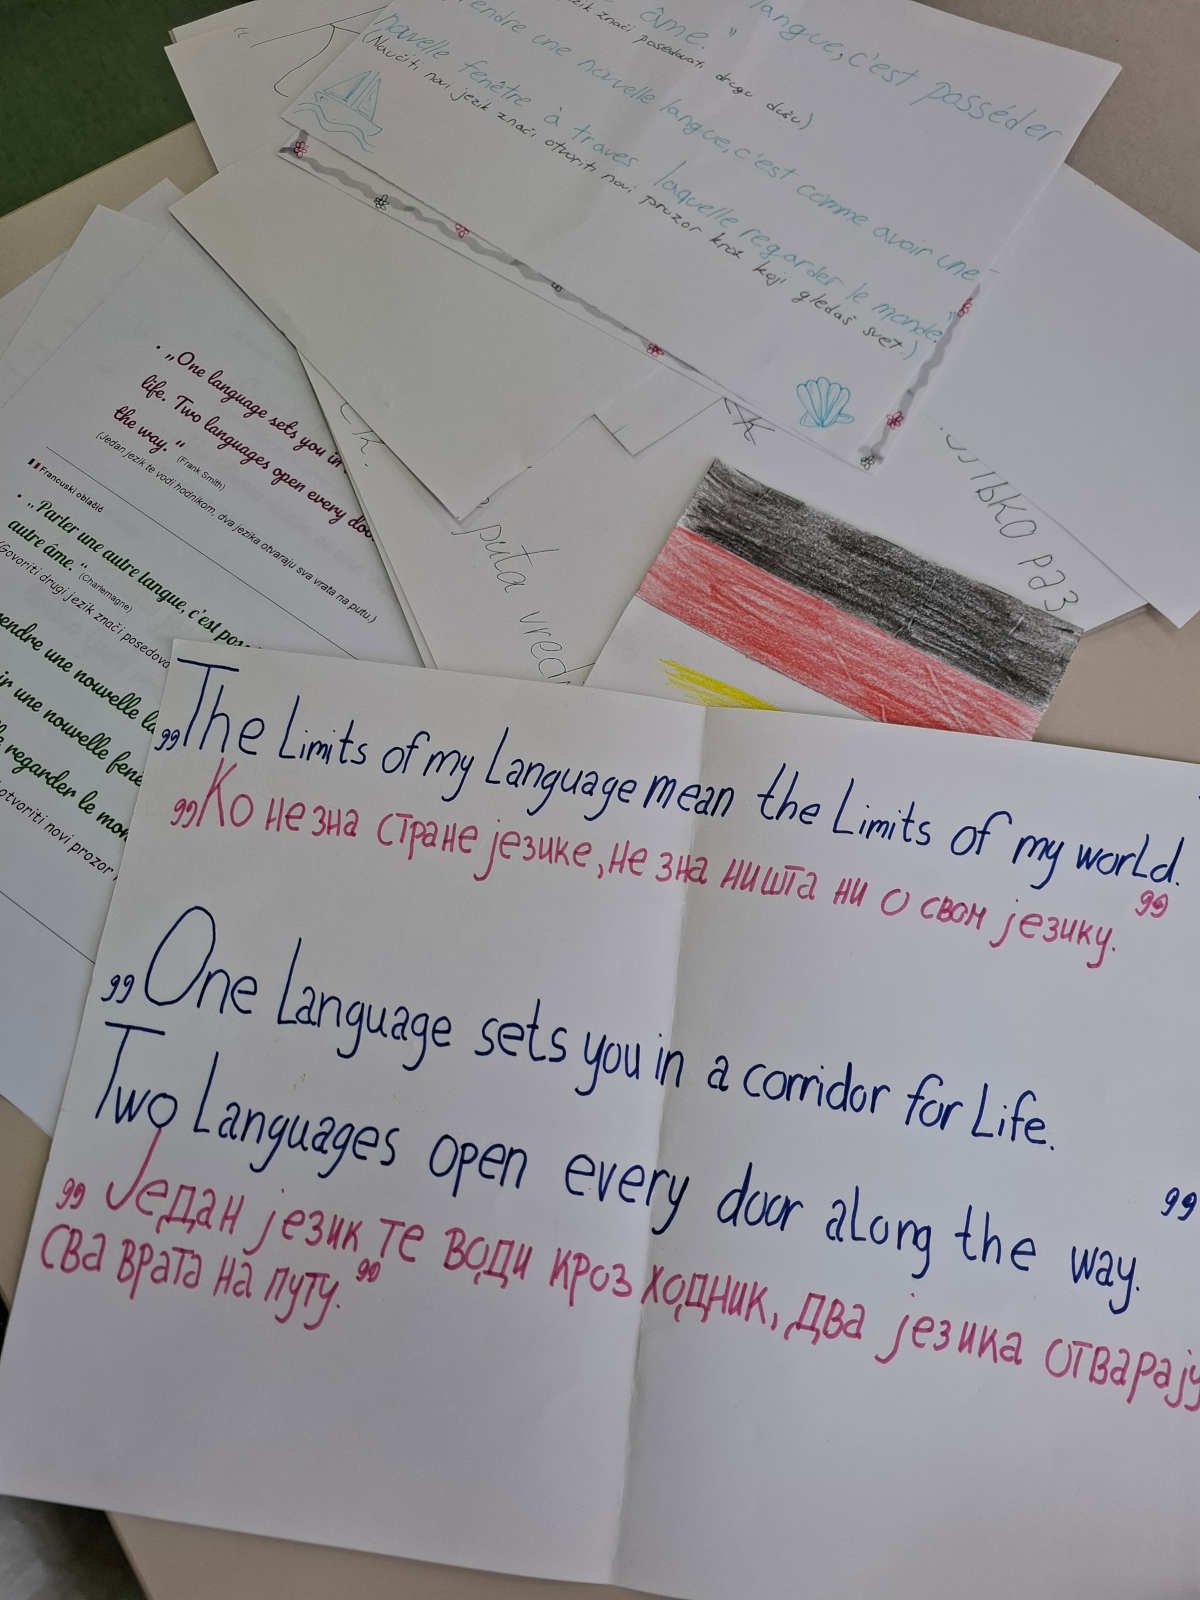 âme."
langue, c'est posséder
jezik znači posedovati drugu dušu)
endre une nouvelle langue, c'est comme avoir une
nouvelle fenêtre à traves laquelle regarder le monde."
(Naučiti novi jezik znači otvoriti novi prozor kroz koji gledaš svet.)
• „One language sets you in
life. Two languages open every doo
the way.“ (Frank Smith)
(Jedan jezik te vodi hodnikom, dva jezika otvaraju sva vrata na putu.)
Francuski oblačić
• „Parler une autre langue, c'est pos
autre âme.“ (Charlemagne)
(Govoriti drugi jezik znači posedova
endre une nouvelle la
ir une nouvelle fenê
regarder le mon
otvoriti novi prozor
puta vred
раз
„The Limits of my Language mean the Limits of my world.
„Ко не зна стране језике, не зна ништа ни о свом језику. "
„One Language sets you in a corridor for Life.
Two Languages open every door along the way. "
„Један језик те води кроз ходник, два језика отварају
сва врата на путу."